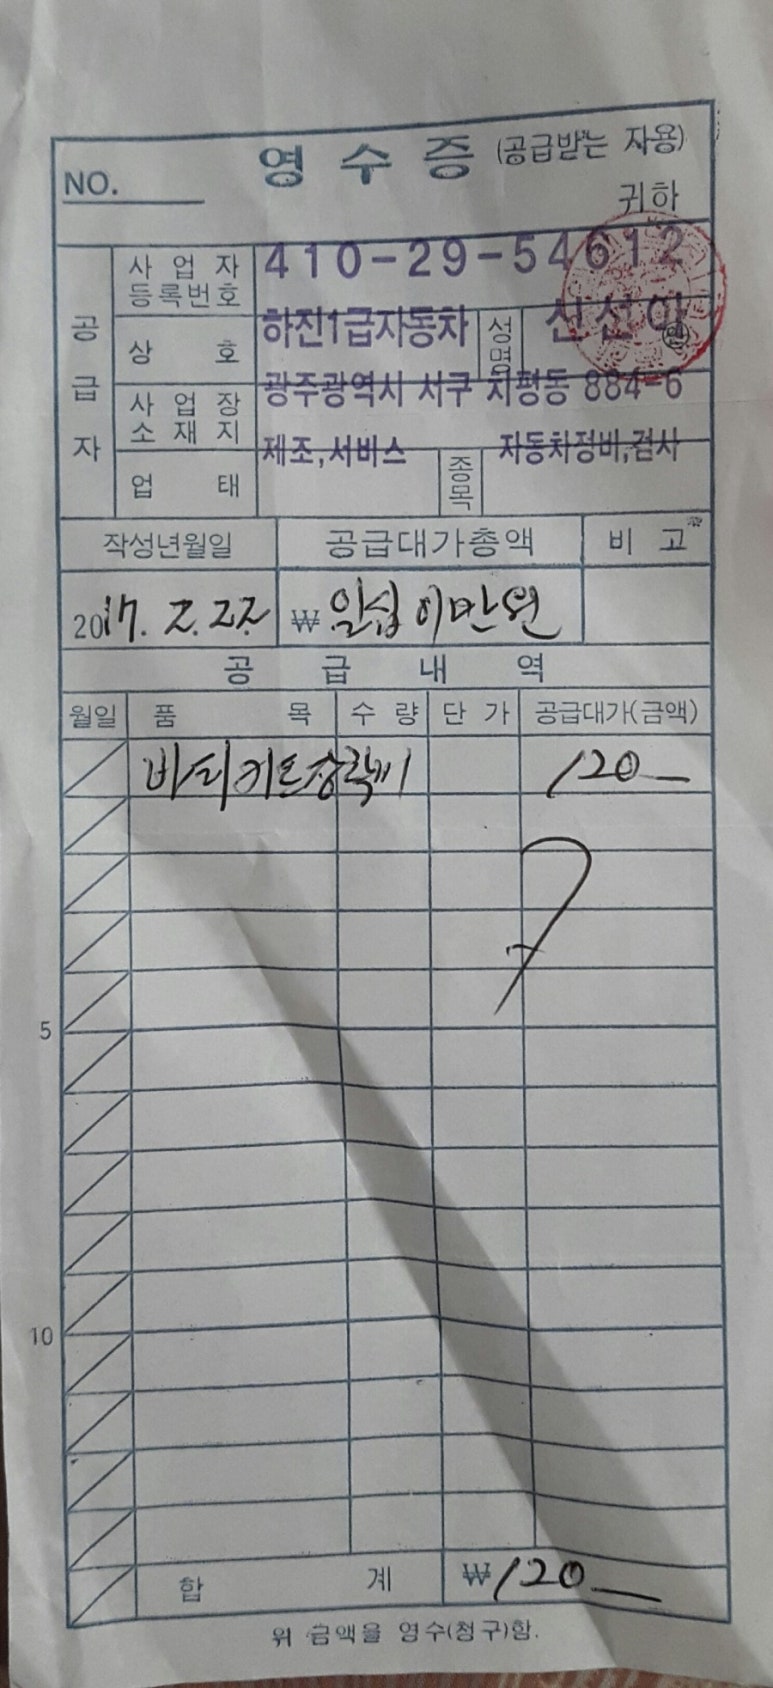 영 수 증 (공급받는 자용)
NO.
귀하
공급자
사업자등록번호 410-29-54612
상호 하진1급자동차 성명 신선아 ㊞
사업장소재지 광주광역시 서구 치평동 884-6
업태 제조,서비스 종목 자동차정비,검사
작성년월일 공급대가총액 비고
2017. 7. 22. ₩ 일십이만원
공 급 내 역
월일 품목 수량 단가 공급대가(금액)
120
5
10
합 계 ₩120
위 금액을 영수(청구)함.